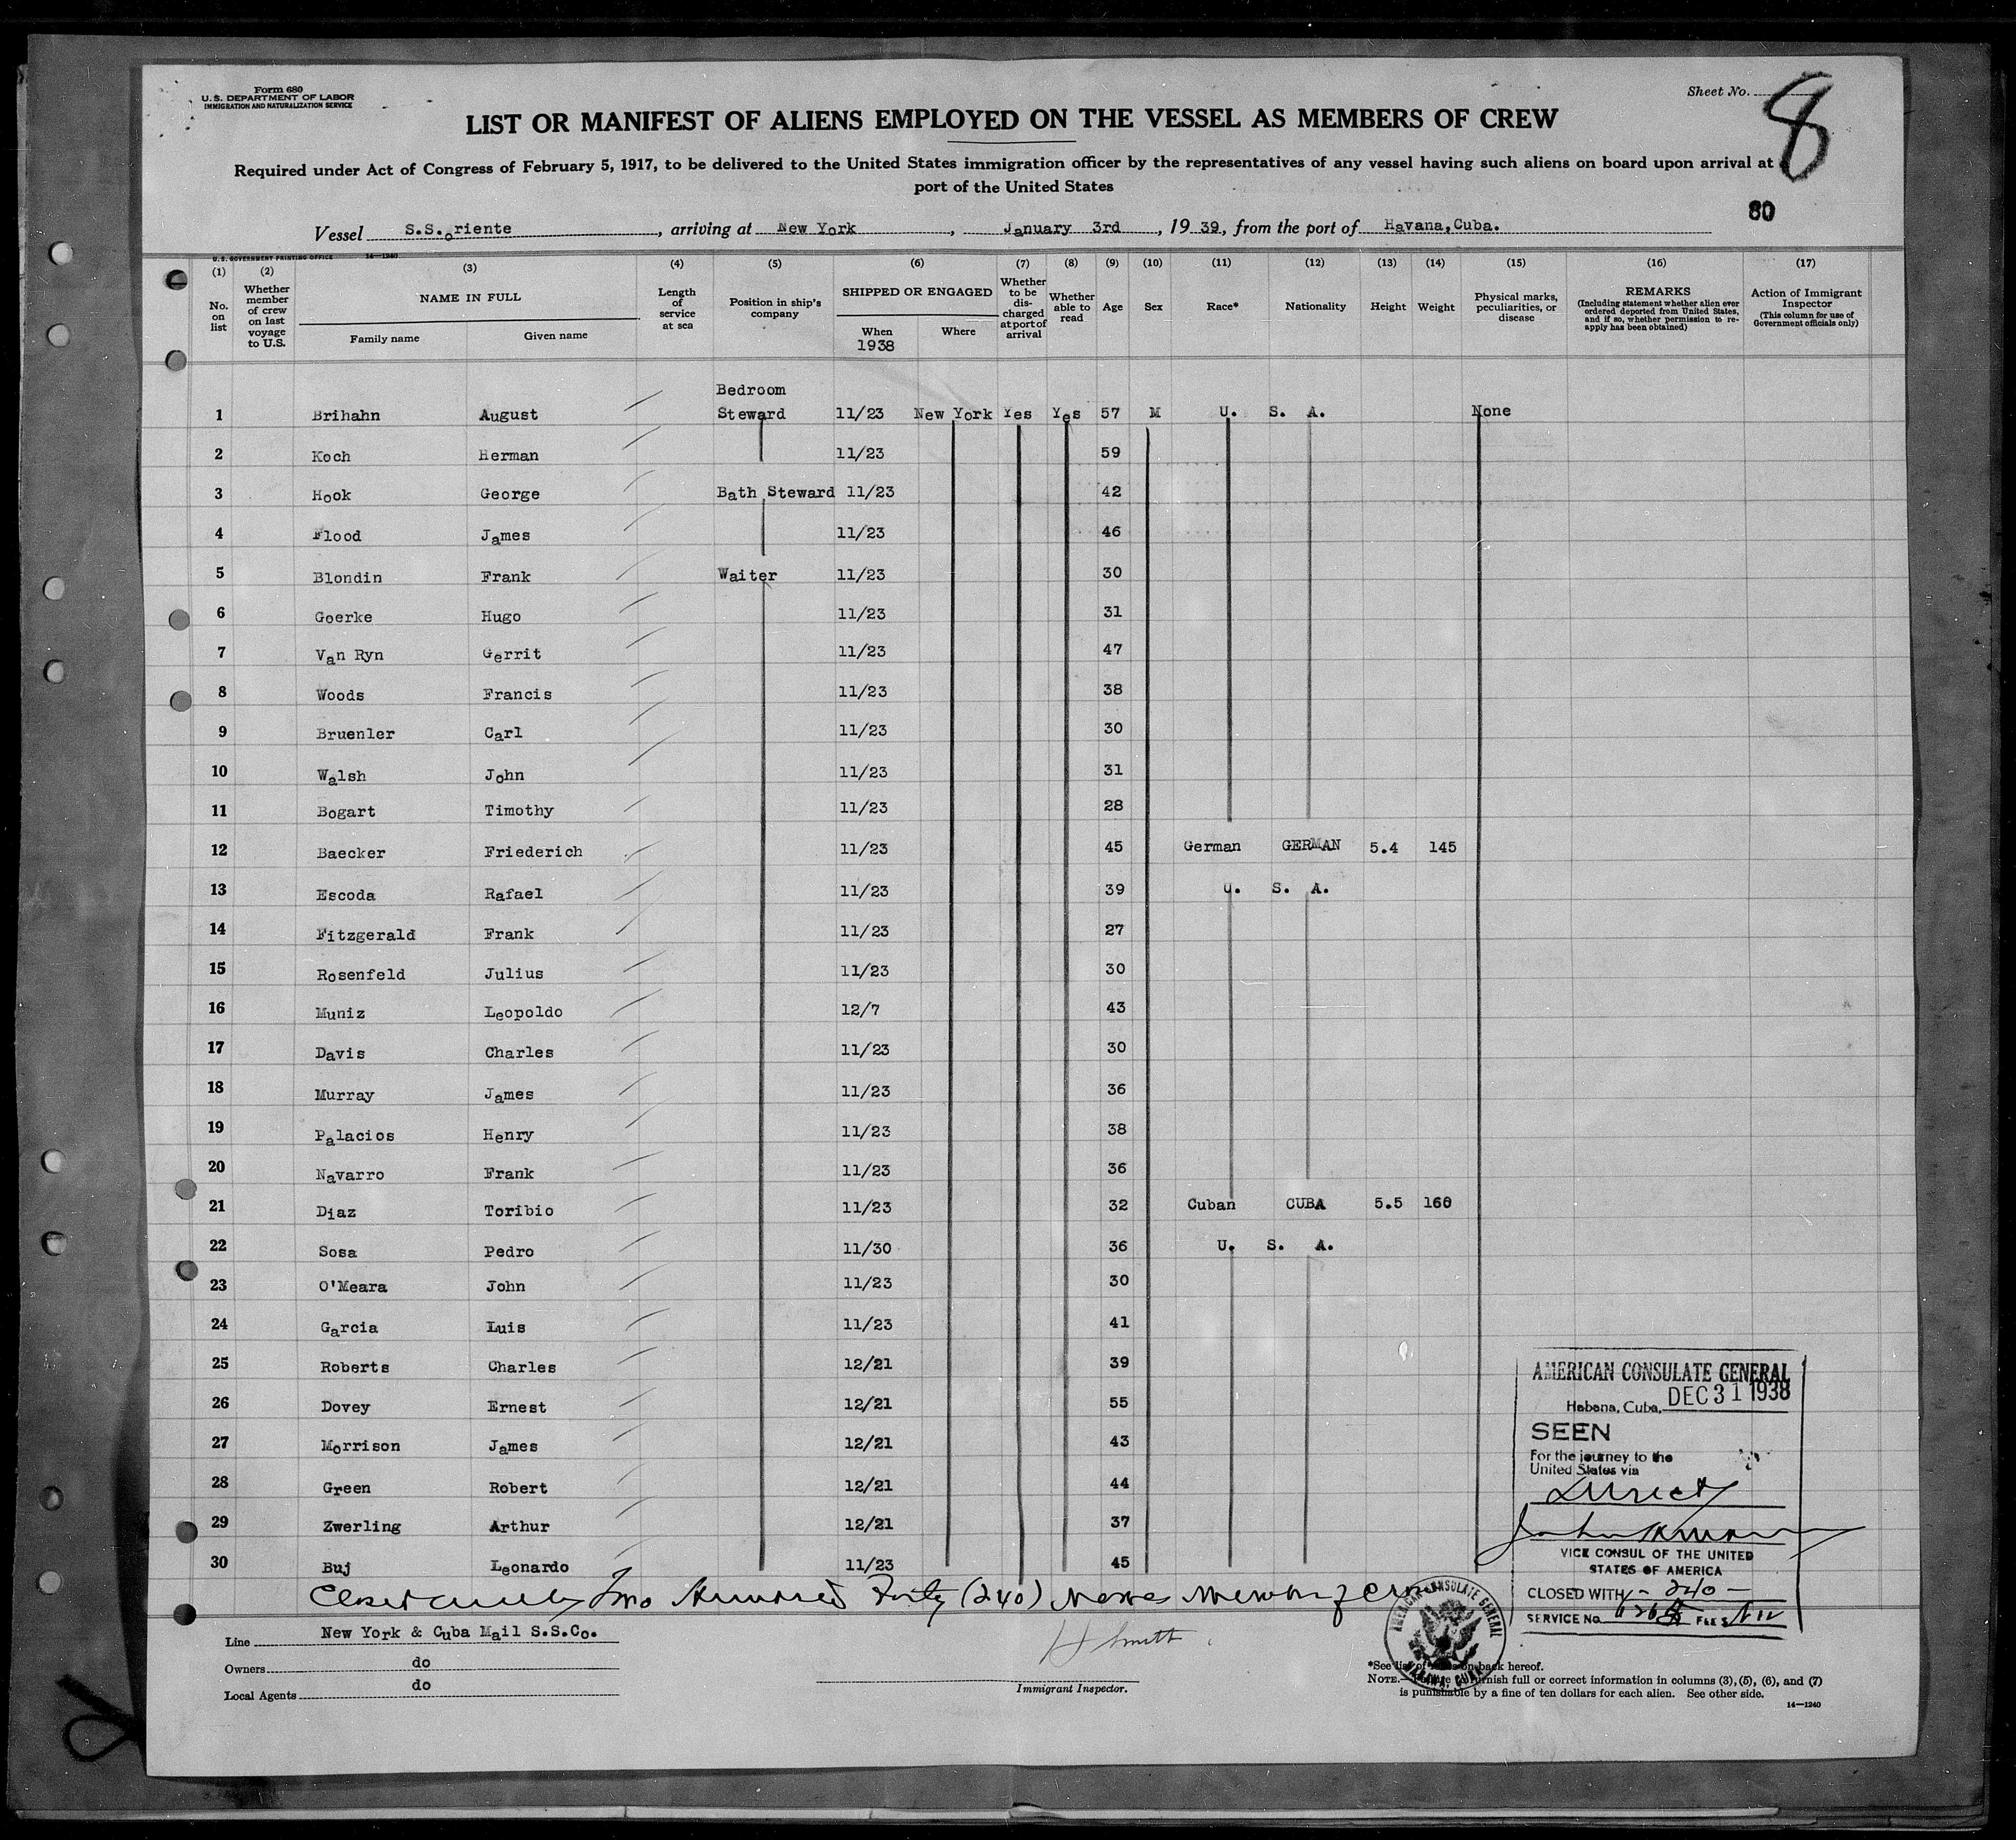 Form 680
U. S. DEPARTMENT OF LABOR
IMMIGRATION AND NATURALIZATION SERVICE
Sheet No. 8
LIST OR MANIFEST OF ALIENS EMPLOYED ON THE VESSEL AS MEMBERS OF CREW
Required under Act of Congress of February 5, 1917, to be delivered to the United States immigration officer by the representatives of any vessel having such aliens on board upon arrival at
port of the United States
80
Vessel S.S.oriente, arriving at New York, January 3rd, 1939, from the port of Havana,Cuba.
U. S. GOVERNMENT PRINTING OFFICE 14—1240
(1) (2) (3) (4) (5) (6) (7) (8) (9) (10) (11) (12) (13) (14) (15) (16) (17)
No. on list
Whether member of crew on last voyage to U.S.
NAME IN FULL
Family name Given name
Length of service at sea
Position in ship's company
SHIPPED OR ENGAGED
When Where
1938
Whether to be discharged at port of arrival
Whether able to read
Age Sex Race* Nationality Height Weight
Physical marks, peculiarities, or disease
REMARKS
(Including statement whether alien ever ordered deported from United States, and if so, whether permission to re-apply has been obtained)
Action of Immigrant Inspector
(This column for use of Government officials only)
Bedroom
1 Brihahn August Steward 11/23 New York Yes Yes 57 M U. S. A. None
2 Koch Herman 11/23 59
3 Hook George Bath Steward 11/23 42
4 Flood James 11/23 46
5 Blondin Frank Waiter 11/23 30
6 Goerke Hugo 11/23 31
7 Van Ryn Gerrit 11/23 47
8 Woods Francis 11/23 38
9 Bruenler Carl 11/23 30
10 Walsh John 11/23 31
11 Bogart Timothy 11/23 28
12 Baecker Friederich 11/23 45 German GERMAN 5.4 145
13 Escoda Rafael 11/23 39 U. S. A.
14 Fitzgerald Frank 11/23 27
15 Rosenfeld Julius 11/23 30
16 Muniz Leopoldo 12/7 43
17 Davis Charles 11/23 30
18 Murray James 11/23 36
19 Palacios Henry 11/23 38
20 Navarro Frank 11/23 36
21 Diaz Toribio 11/23 32 Cuban CUBA 5.5 160
22 Sosa Pedro 11/30 36 U. S. A.
23 O'Meara John 11/23 30
24 Garcia Luis 11/23 41
25 Roberts Charles 12/21 39
26 Dovey Ernest 12/21 55
27 Morrison James 12/21 43
28 Green Robert 12/21 44
29 Zwerling Arthur 12/21 37
30 Buj Leonardo 11/23 45
Two Hundred Forty (240)
AMERICAN CONSULATE GENERAL
Habana, Cuba, DEC 31 1938
SEEN
For the journey to the
United States via
Direct
VICE CONSUL OF THE UNITED
STATES OF AMERICA
CLOSED WITH - 240 -
SERVICE No. FEE $
AMERICAN CONSULATE GENERAL
HAVANA, CUBA
Line New York & Cuba Mail S.S.Co.
Owners do
Local Agents do
H Smith
Immigrant Inspector.
*See list of on back hereof.
NOTE.— furnish full or correct information in columns (3), (5), (6), and (7)
is punishable by a fine of ten dollars for each alien. See other side.
14—1240